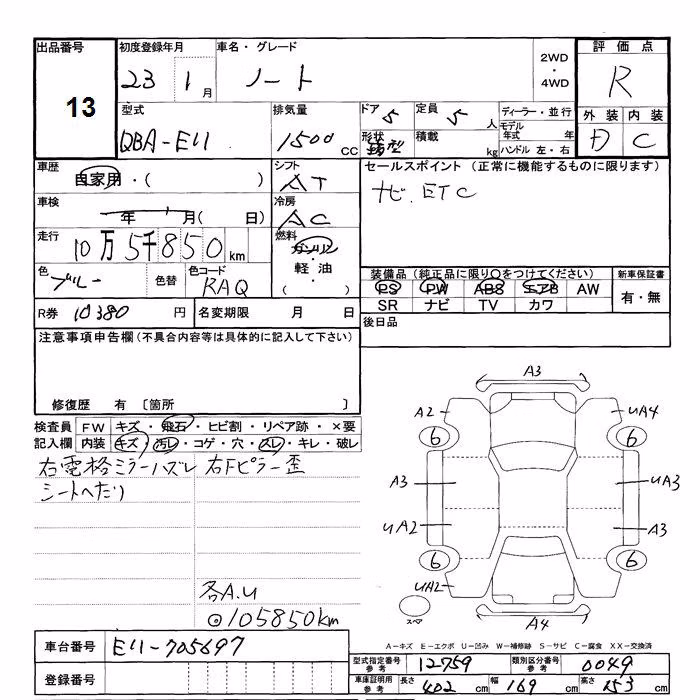 出品番号 13
初度登録年月 23 1月
車名・グレード ノート
2WD・4WD
評価点 R
外装 内装
D C
型式 QBA-E11
排気量 1500 CC
ドア 5
形状 箱型
定員 5人
積載 kg
ディーラー・並行
モデル年式 年
ハンドル 左・右
車歴 自家用・( )
シフト AT
セールスポイント (正常に機能するものに限ります)
ナビ. ETC
車検 年 月( 日)
冷房 AC
走行 10万5千850km
燃料 ガソリン・軽油・( )
色 ブルー 色替
色コード RAQ
装備品 (純正品に限り○をつけてください)
PS PW ABS エアB AW
SR ナビ TV カワ
新車保証書
有・無
R券 10380 円
名変期限 月 日
後日品
注意事項申告欄 (不具合内容等は具体的に記入して下さい)
修復歴 有 〔箇所 〕
検査員記入欄
FW キズ・飛石・ヒビ割・リペア跡・×要
内装 キズ・汚レ・コゲ・穴・スレ・キレ・破レ
右電格ミラーハズレ 右Fピラー歪
シートへたり
各A.U
⊙105850km
A3
A2 UA4
6 6
A3 UA3
UA2 A3
6 6
UA2
スペア
A4
A-キズ E-エクボ U-凹み W-補修跡 S-サビ C-腐食 XX-交換済
車台番号 E11-705697
登録番号
型式指定番号 参考 12759
類別区分番号 参考 0049
車庫証明用 参考 長さ 402 cm 幅 169 cm 高さ 153 cm